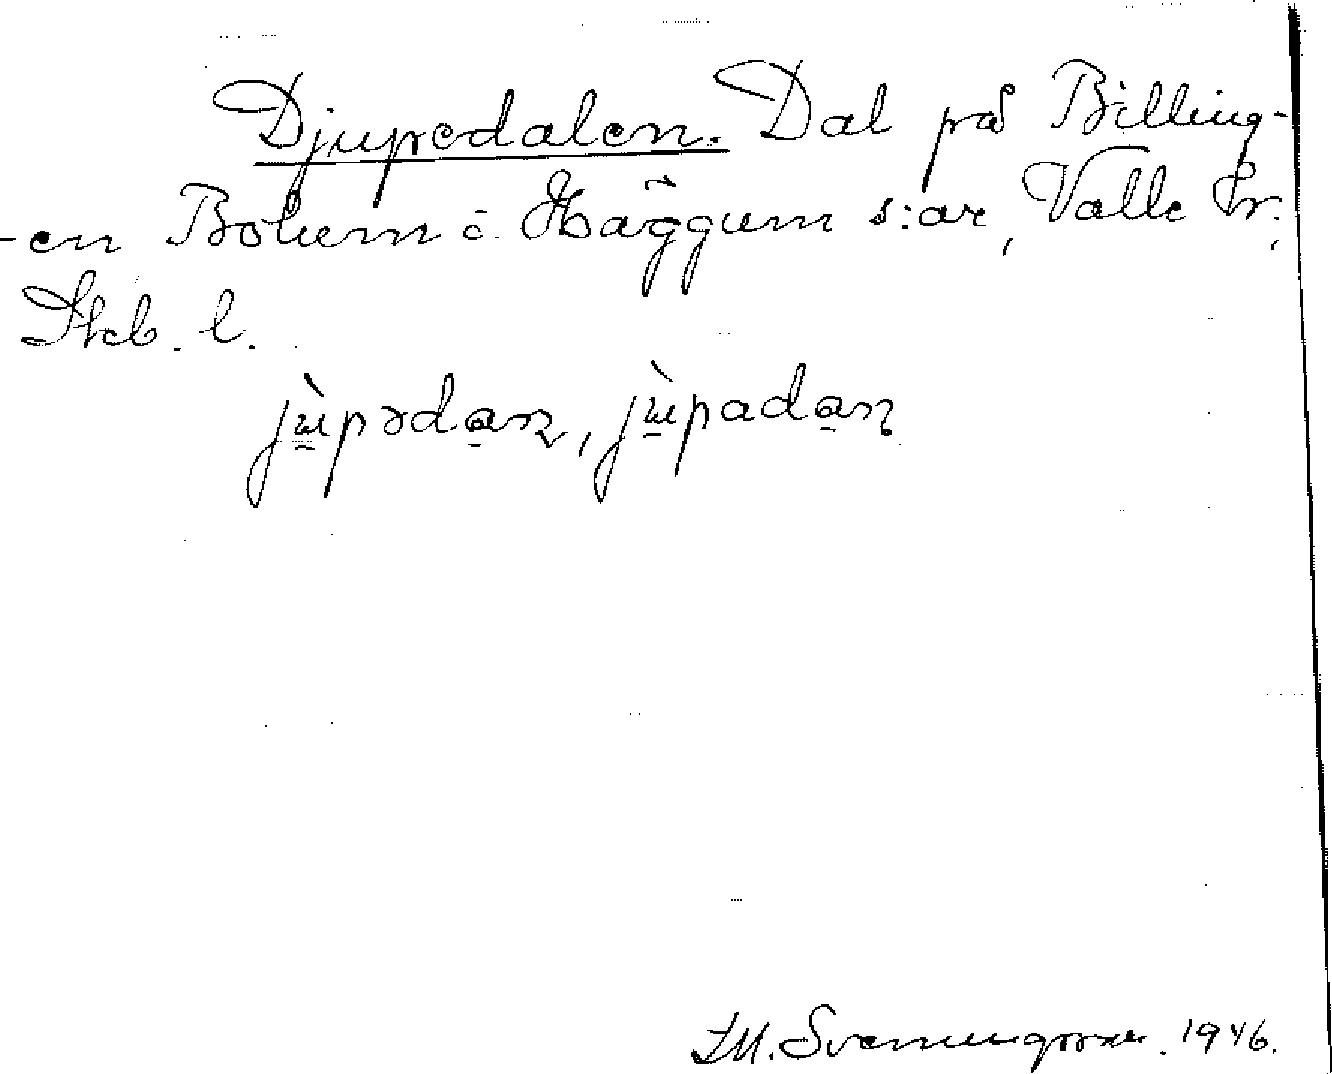 Djupedalen. Dal på Billing-
-en Bolum o. Häggum s:ar, Valle hr,
Skb. l.
jùpədan, jùpadan
Svenungsson. 1946.